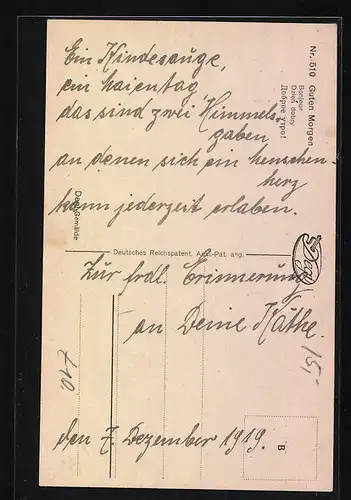 Ein Kindesauge,
ein Maientag,
das sind zwei Himmels-
gaben
an denen sich ein Menschen-
herz
kann jederzeit erlaben.
Zur frdl. Erinnerung
an Deine Käthe.
den 7. Dezember 1919.
Nr. 510 Guten Morgen
Bonjour
Dzień dobry
Доброе утро!
Gemälde
Deutsches Reichspatent. Ausl.-Pat. ang.
15,-
£10
B